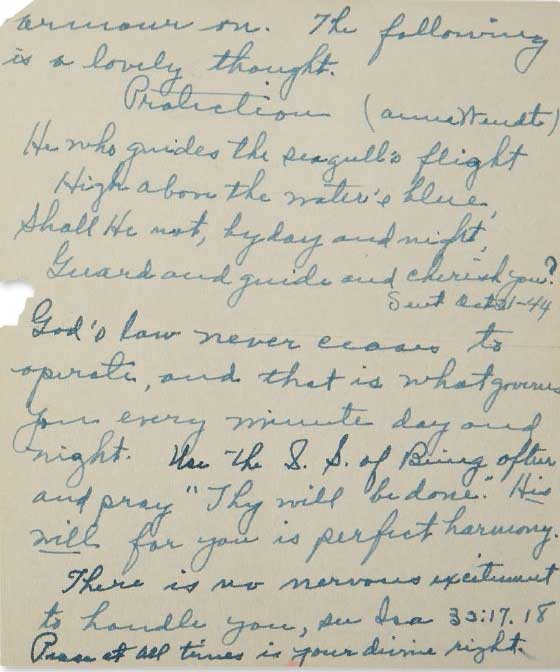 armour on. The following
is a lovely thought.
Protection (Anna Wendt)
He who guides the seagull's flight
High above the water's blue,
Shall He not, by day and night,
Guard and guide and cherish you?
Sent Oct 31-44
God's law never ceases to
operate, and that is what governs
you every minute day and
night. Use the S. S. of Being often
and pray "Thy will be done." His
will for you is perfect harmony.
There is no nervous excitement
to handle you, see Isa 33:17.18
Peace at all times is your divine right.